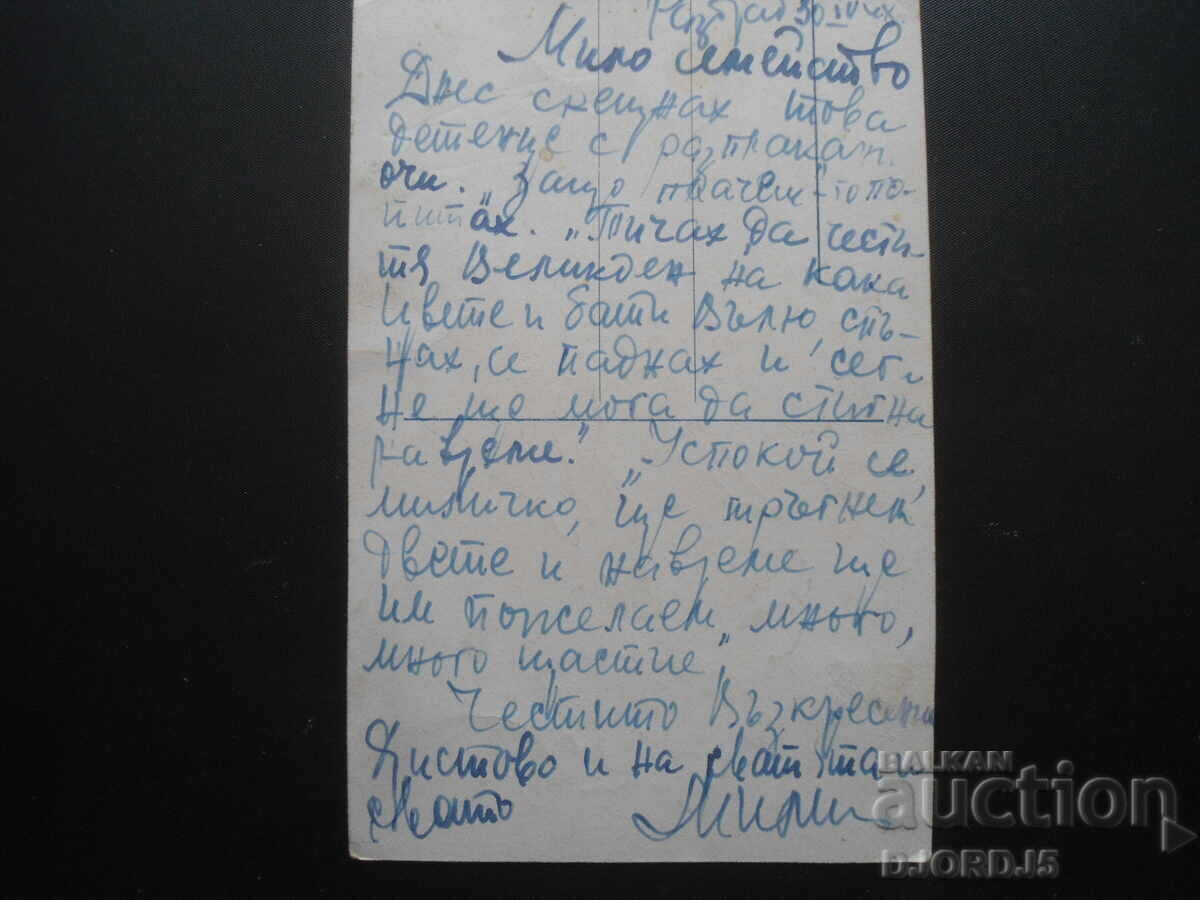 Разград 30 IV
Мило семейство
Днес срещнах това
детенце с разплакани
очи. „Защо плачеш“ – го по-
питах. „Тичах да чести-
тя Великден на кака
Цвете и бати Вълю, спъ-
нах се паднах и сега
не ще мога да стигна
навреме.“ „Успокой се,
миличко, ще тръгнем
двете и навреме ще
им пожелаем „много,
много щастие“.
Честито Възкресение
Христово и на сватята и
сватъ
BALKAN
auction
DJORDJ5